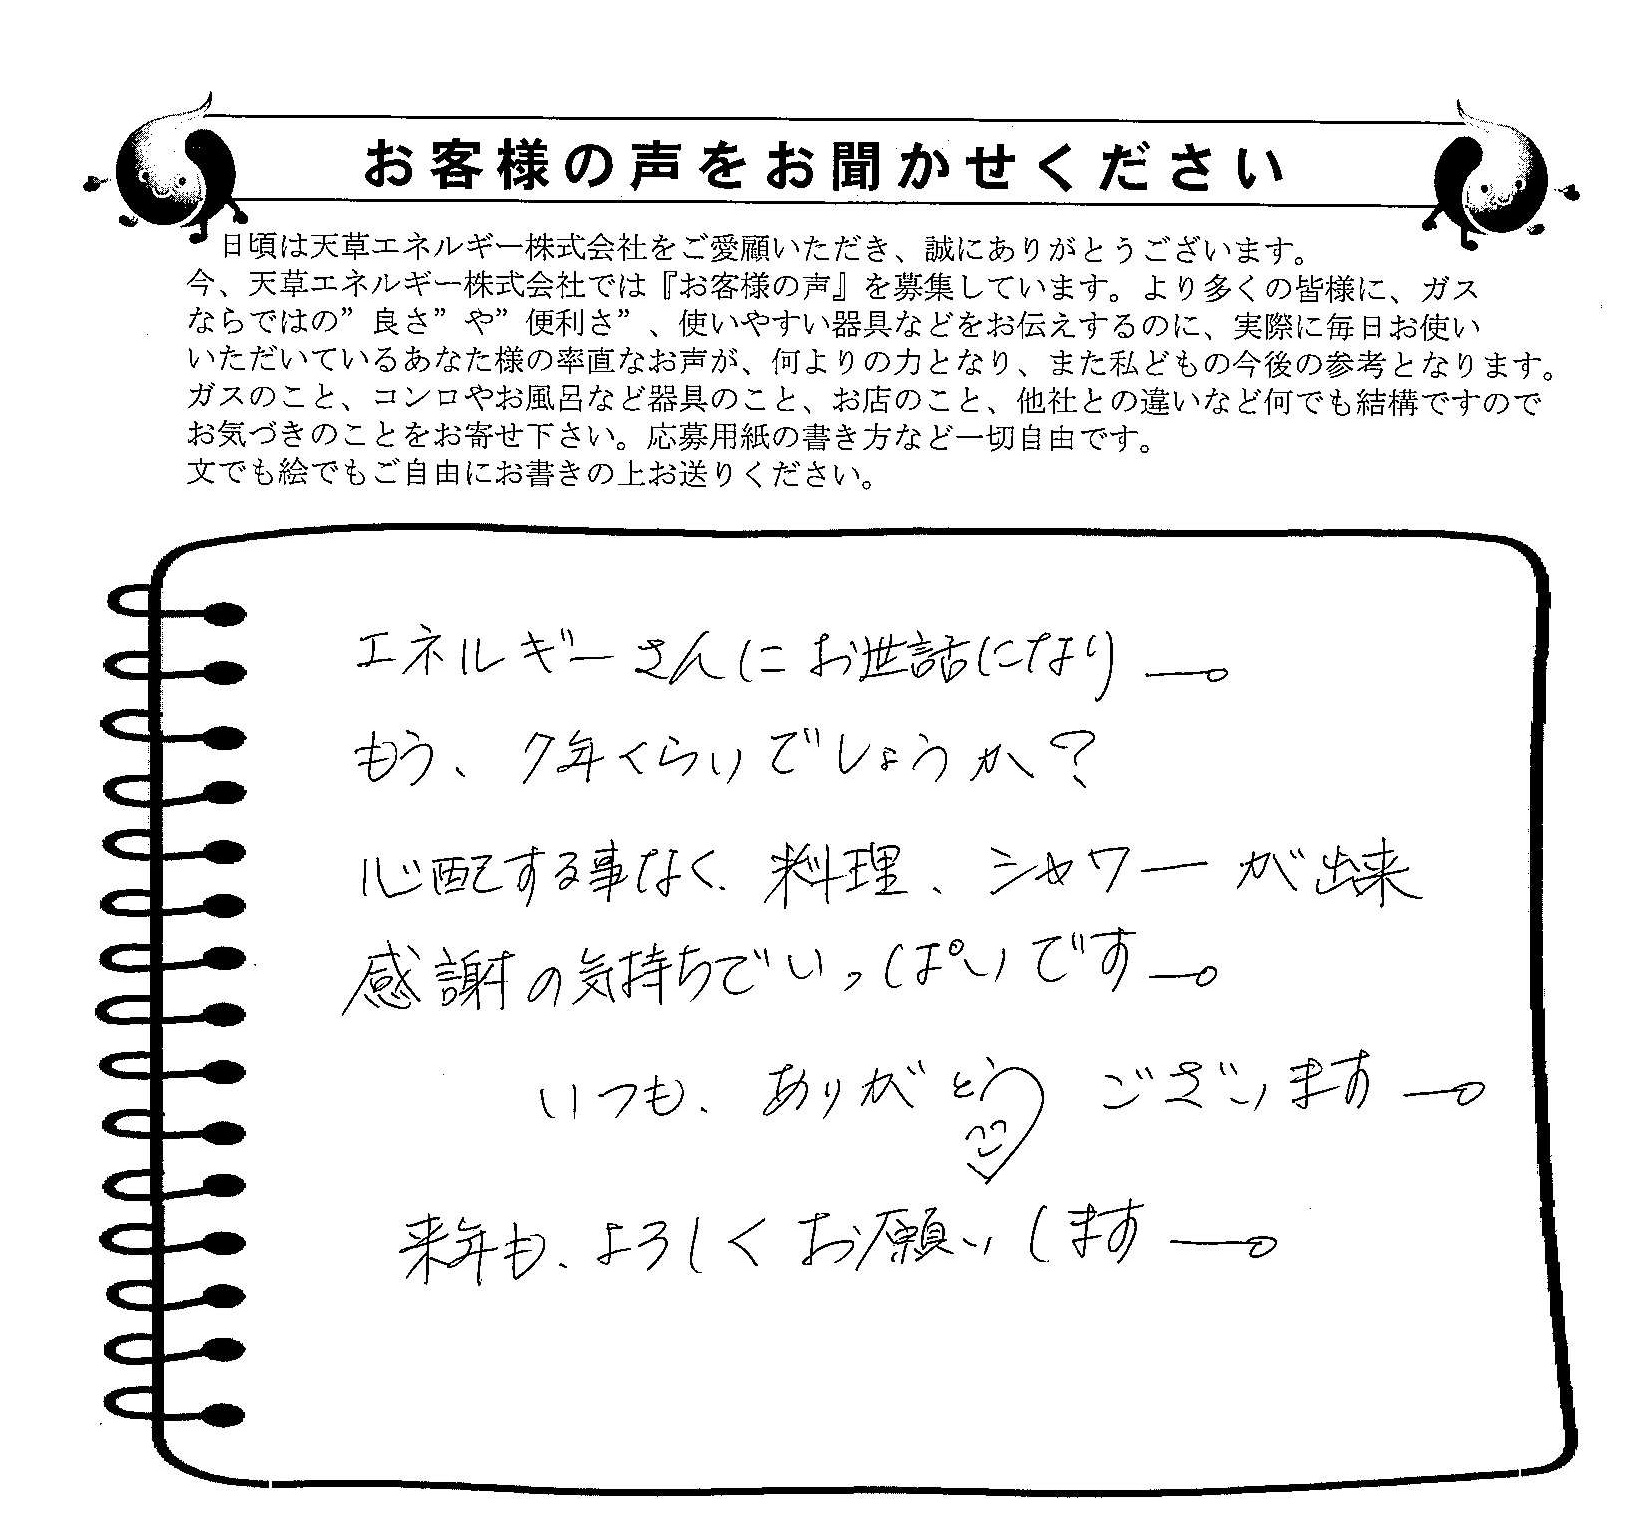 お客様の声をお聞かせください
日頃は天草エネルギー株式会社をご愛顧いただき、誠にありがとうございます。
今、天草エネルギー株式会社では『お客様の声』を募集しています。より多くの皆様に、ガス
ならではの”良さ”や”便利さ”、使いやすい器具などをお伝えするのに、実際に毎日お使い
いただいているあなた様の率直なお声が、何よりの力となり、また私どもの今後の参考となります。
ガスのこと、コンロやお風呂など器具のこと、お店のこと、他社との違いなど何でも結構ですので
お気づきのことをお寄せ下さい。応募用紙の書き方など一切自由です。
文でも絵でもご自由にお書きの上お送りください。
エネルギーさんにお世話になり―。
もう、7年くらいでしょうか?
心配する事なく、料理、シャワーが出来
感謝の気持ちでいっぱいです―。
いつも、ありがとうございます―。
来年も、よろしくお願いします―。